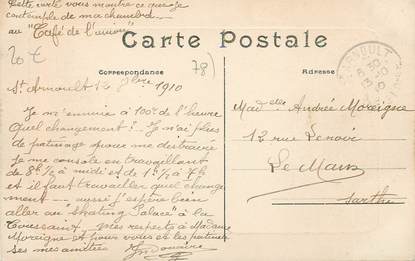 Cette carte vous montre ce que je
contemple de ma chambre
au "Café de l'union"
Carte Postale
20 €
78)
Correspondance
Adresse
St Arnoult 12 1910
Je m'ennuie à 100 de l'heure
Quel changement! Je n'ai plus
de patinage pour me distraire
Je me console en travaillant
de 8h½ à midi et de 1h½ à 7h
et il faut travailler quel change
ment — aussi j'espère bien
aller au "Skating Palace" à la
Toussaint. Mes respects à Madame
Moreigne et pour vous et les patineurs
mes amitiés
Mad elle Andrée Moreigne
12 rue Lenoir
Le Mans
Sarthe